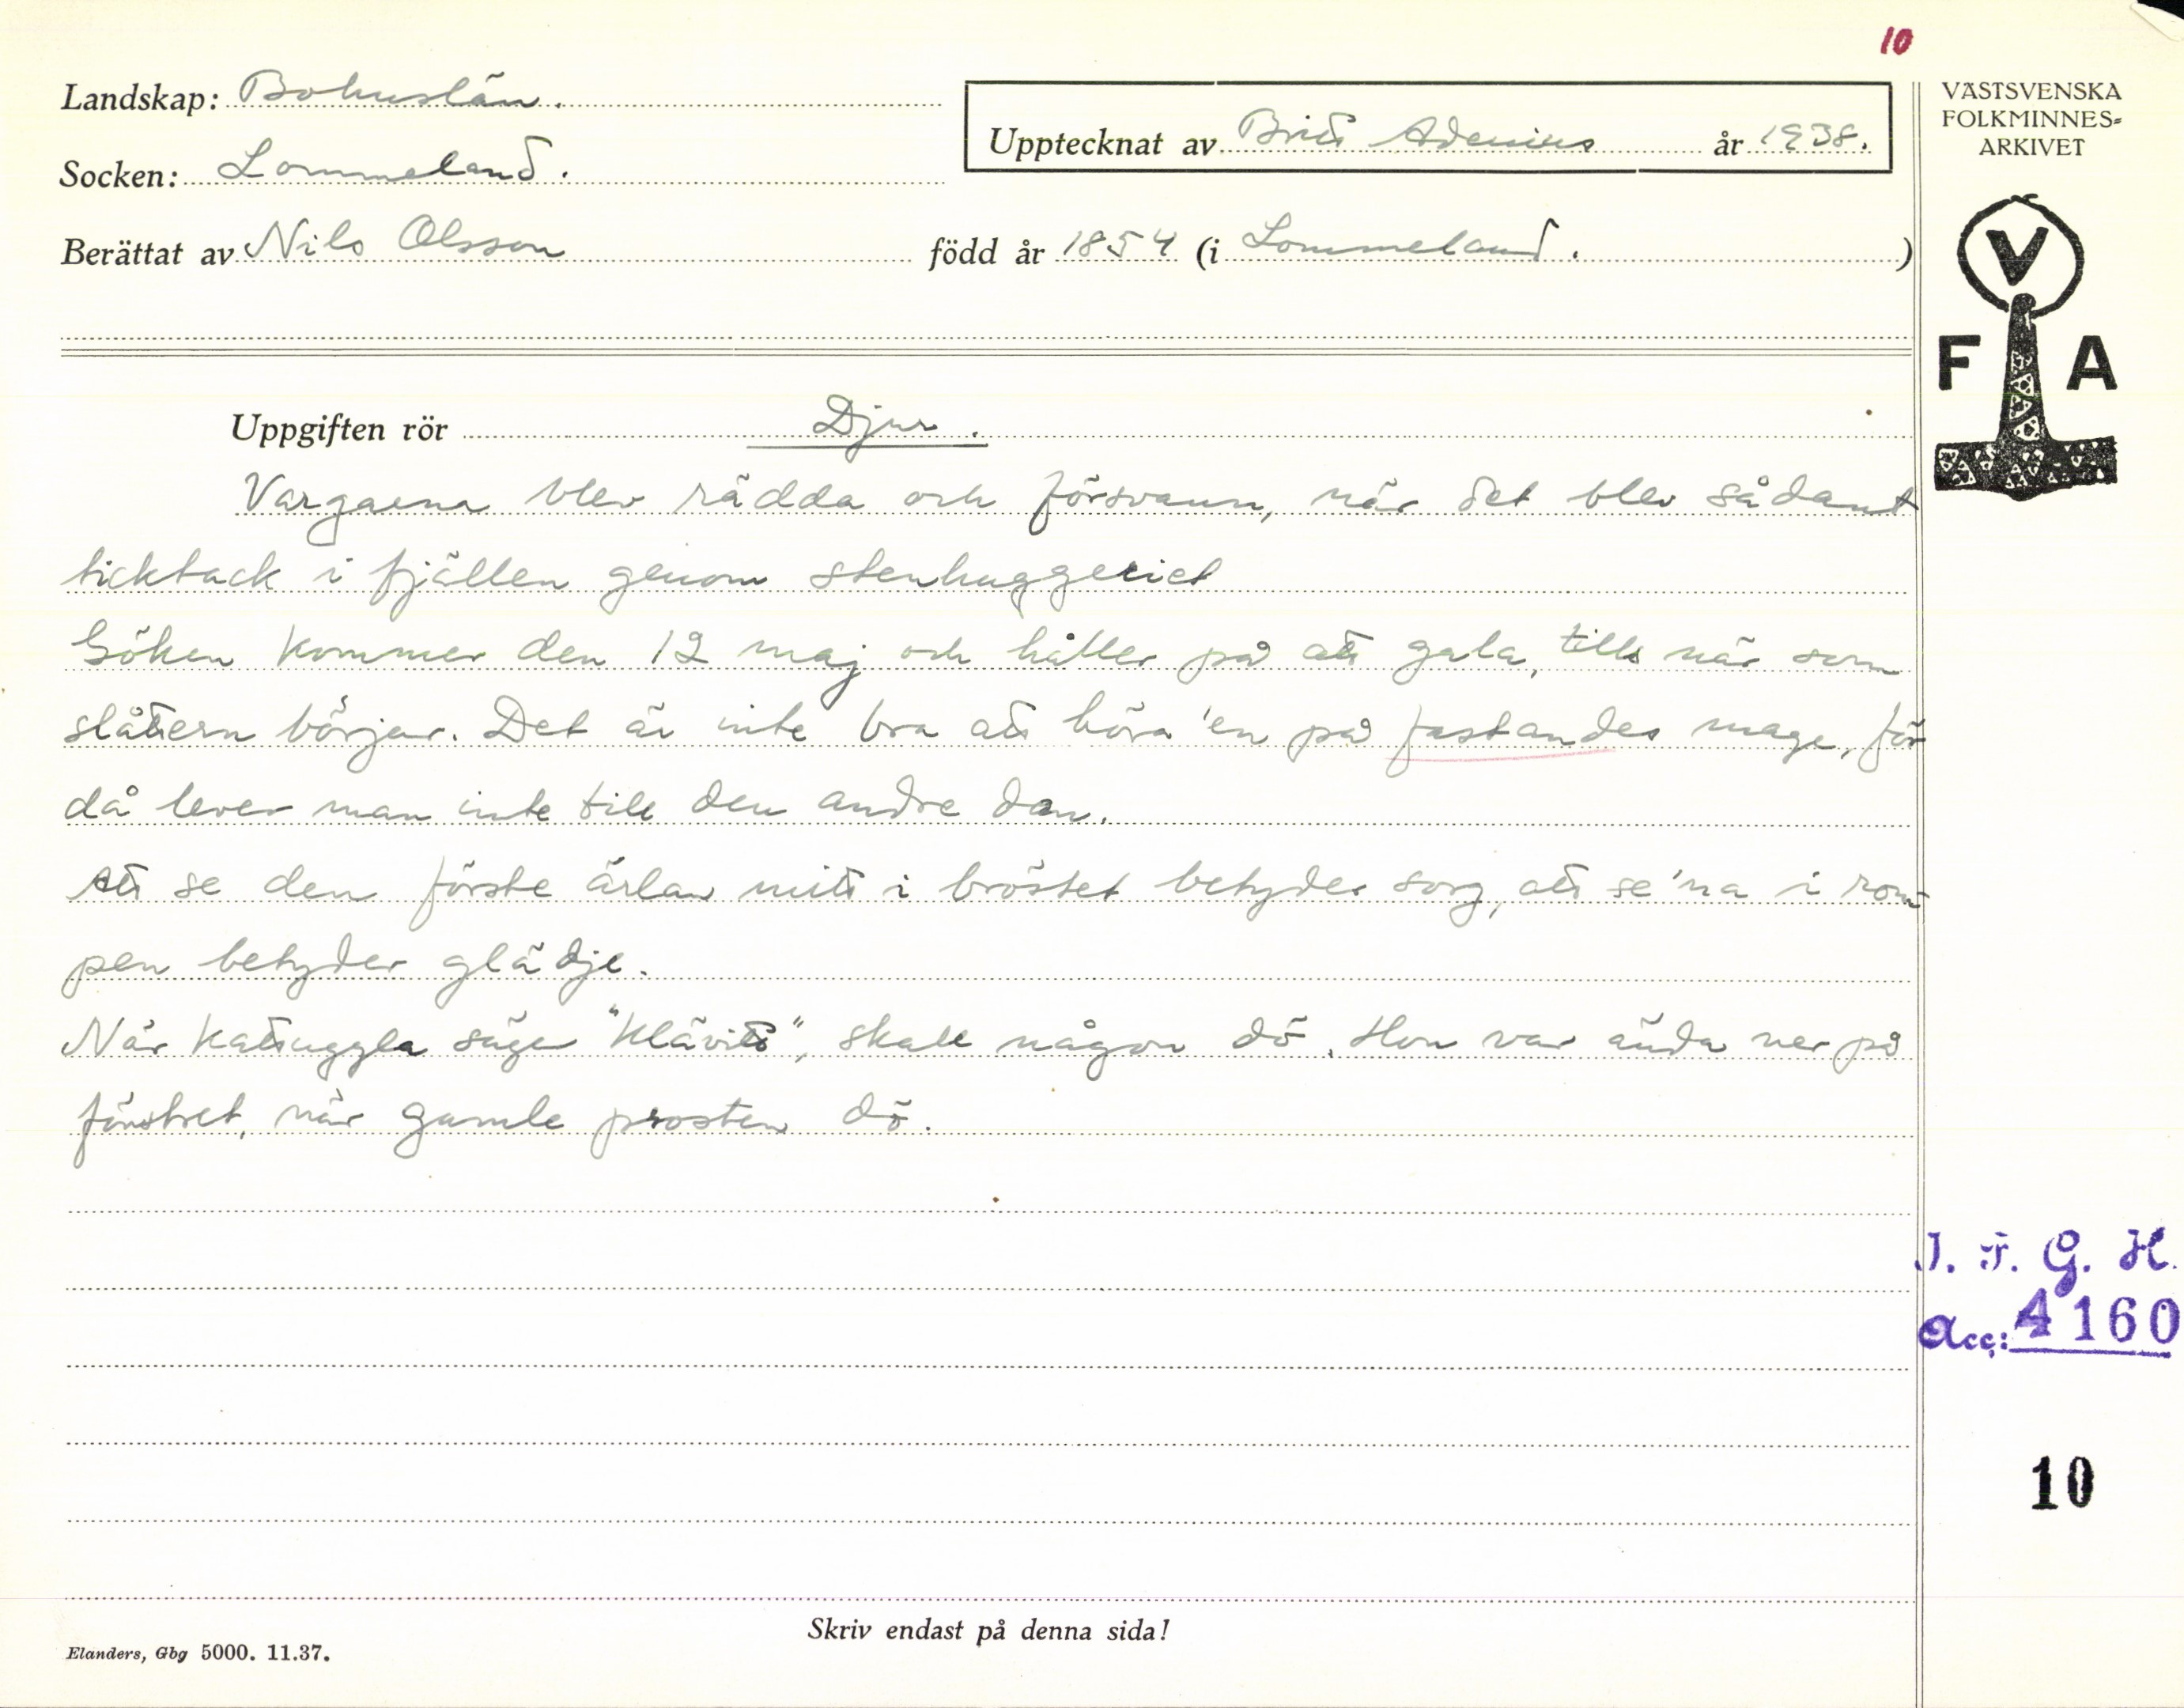 10
Landskap: Bohuslän.
Upptecknat av Britt Adenius år 1938.
VÄSTSVENSKA
FOLKMINNES-
ARKIVET
Socken: Lommeland.
Berättat av Nils Olsson född år 1854 (i Lommeland.)
V
F A
Uppgiften rör Djur.
Vargarna blev rädda och försvann, när det blev sådant
ticktack i fjällen genom stenhuggeriet
Göken kommer den 12 maj och håller på att gala, tills när som
slåttern börjar. Det är inte bra att höra 'en på fastandes mage, för
då lever man inte till den andre dan.
Att se den förste ärlan mitt i bröstet betyder sorg, att se 'na i rom-
pen betyder glädje.
När kattuggla säger "Klävitt", skall någon dö. Hon var ända ner på
fönstret, när gamle prosten dö.
I. F. G. H.
Acc: 4160
10
Skriv endast på denna sida!
Elanders, Gbg 5000. 11.37.